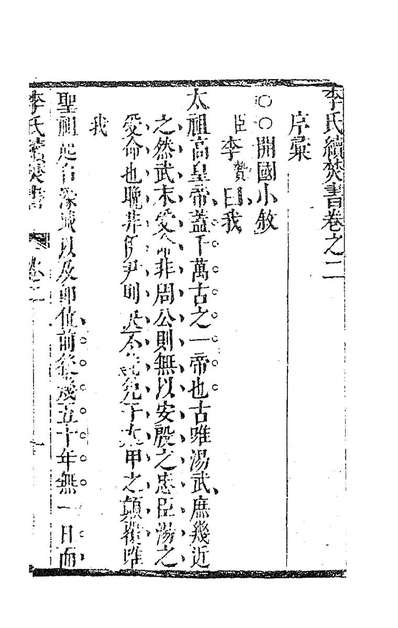 李氏續焚書卷之二
序彙
○○開國小敘
臣李贄曰我
太祖高皇帝蓋千萬古之一帝也古唯湯武庶幾近
之然武末受命非周公則無以安殷之忠臣湯之
受命也晚非伊尹則決不能免于太甲之顛覆唯
我
聖祖起自濠城以及即位前後幾五十年無一日而
李氏續焚書 卷二 一